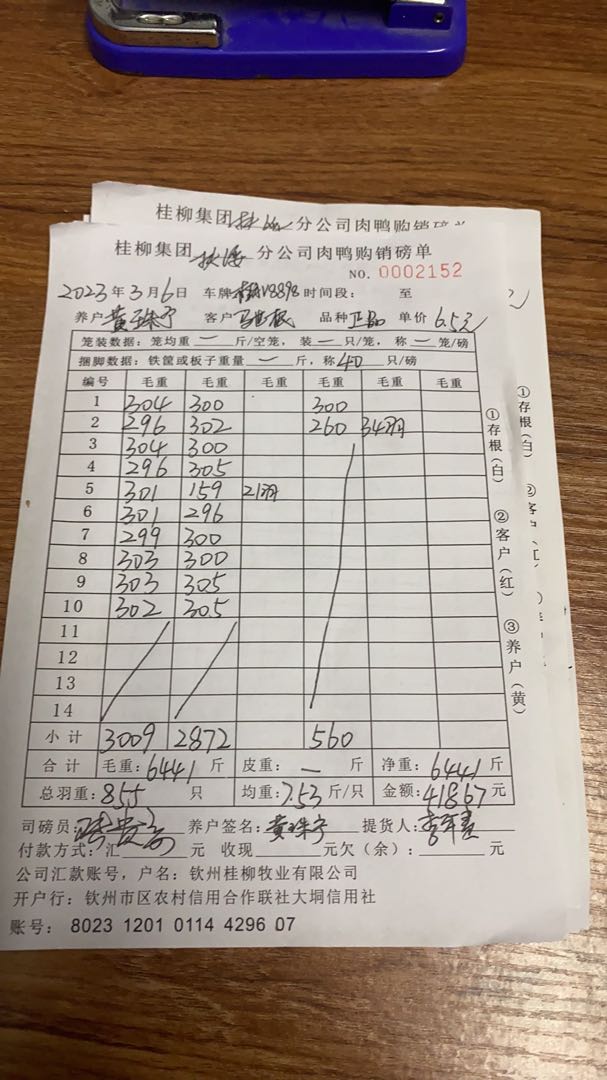 桂柳集团 分公司肉鸭购销磅单
桂柳集团 扶绥 分公司肉鸭购销磅单
NO. 0002152
2023年3月6日 车牌 V8898 时间段： 至
养户 黄珠宁 客户 马世根 品种 正品 单价 6.5元
笼装数据：笼均重 一 斤/空笼，装 一 只/笼，称 一 笼/磅
捆脚数据：铁筐或板子重量 一 斤，称 40 只/磅
编号 毛重 毛重 毛重 毛重 毛重 毛重
1 304 300 300
2 296 302 260 34羽
3 304 300
4 296 305
5 301 159 21羽
6 301 296
7 299 300
8 303 300
9 303 305
10 302 305
11
12
13
14
小计 3009 2872 560
合计 毛重：6441 斤 皮重： 一 斤 净重：6441 斤
总羽重：855 只 均重：7.53 斤/只 金额：41867 元
司磅员： 养户签名：黄珠宁 提货人：
付款方式：汇 元 收现 元欠（余）： 元
公司汇款账号，户名：钦州桂柳牧业有限公司
开户行：钦州市区农村信用合作联社大垌信用社
账号： 8023 1201 0114 4296 07
①存根（白）
②客户（红）
③养户（黄）
①存根（白）